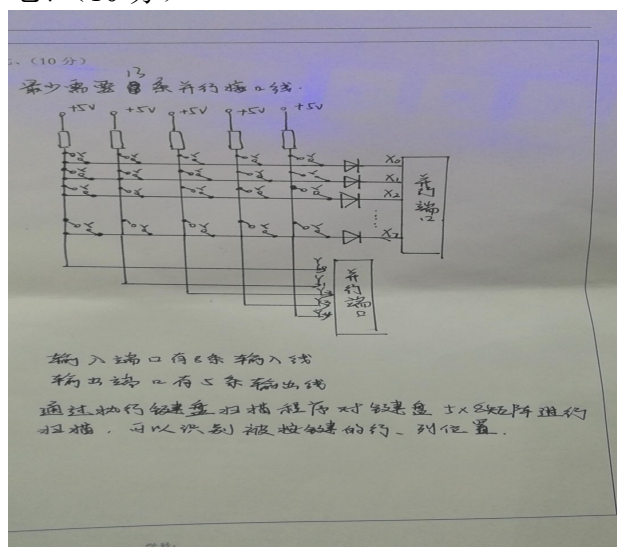 七、(10 分)
、(10 分)
最少需要 13 条并行接口线.
+5V +5V +5V +5V +5V
X0
X1
X2
X7
并行端口
Y0
Y1
Y2
Y3
Y4
并行端口
输入端口有8条输入线
输出端口有5条输出线
通过执行键盘扫描程序对键盘 5×8矩阵进行
扫描，可以识别被按键的行、列位置.